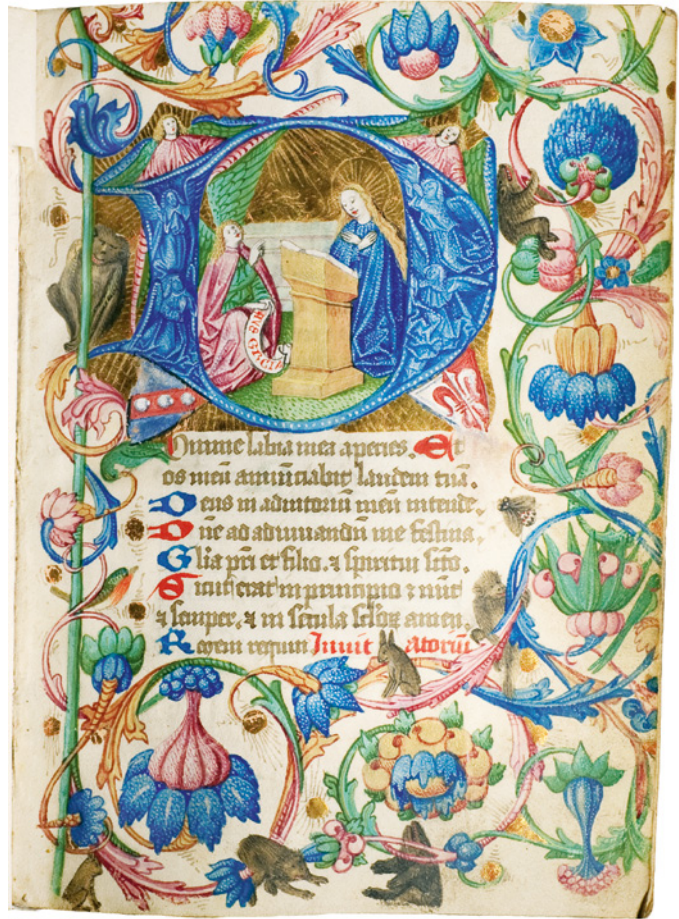 AVE GRACIA
Domine labia mea aperies. Et
os meū annūciabit laudem tuā.
Deus in adiutoriū meū intende.
Dñe ad adiuuandū me festina.
Glia pri et filio. ⁊ spiritui scto.
Sicut erat in principio ⁊ nūc
⁊ semper. ⁊ in secula sclōꝝ amen.
Regem regum Inuitatoriū